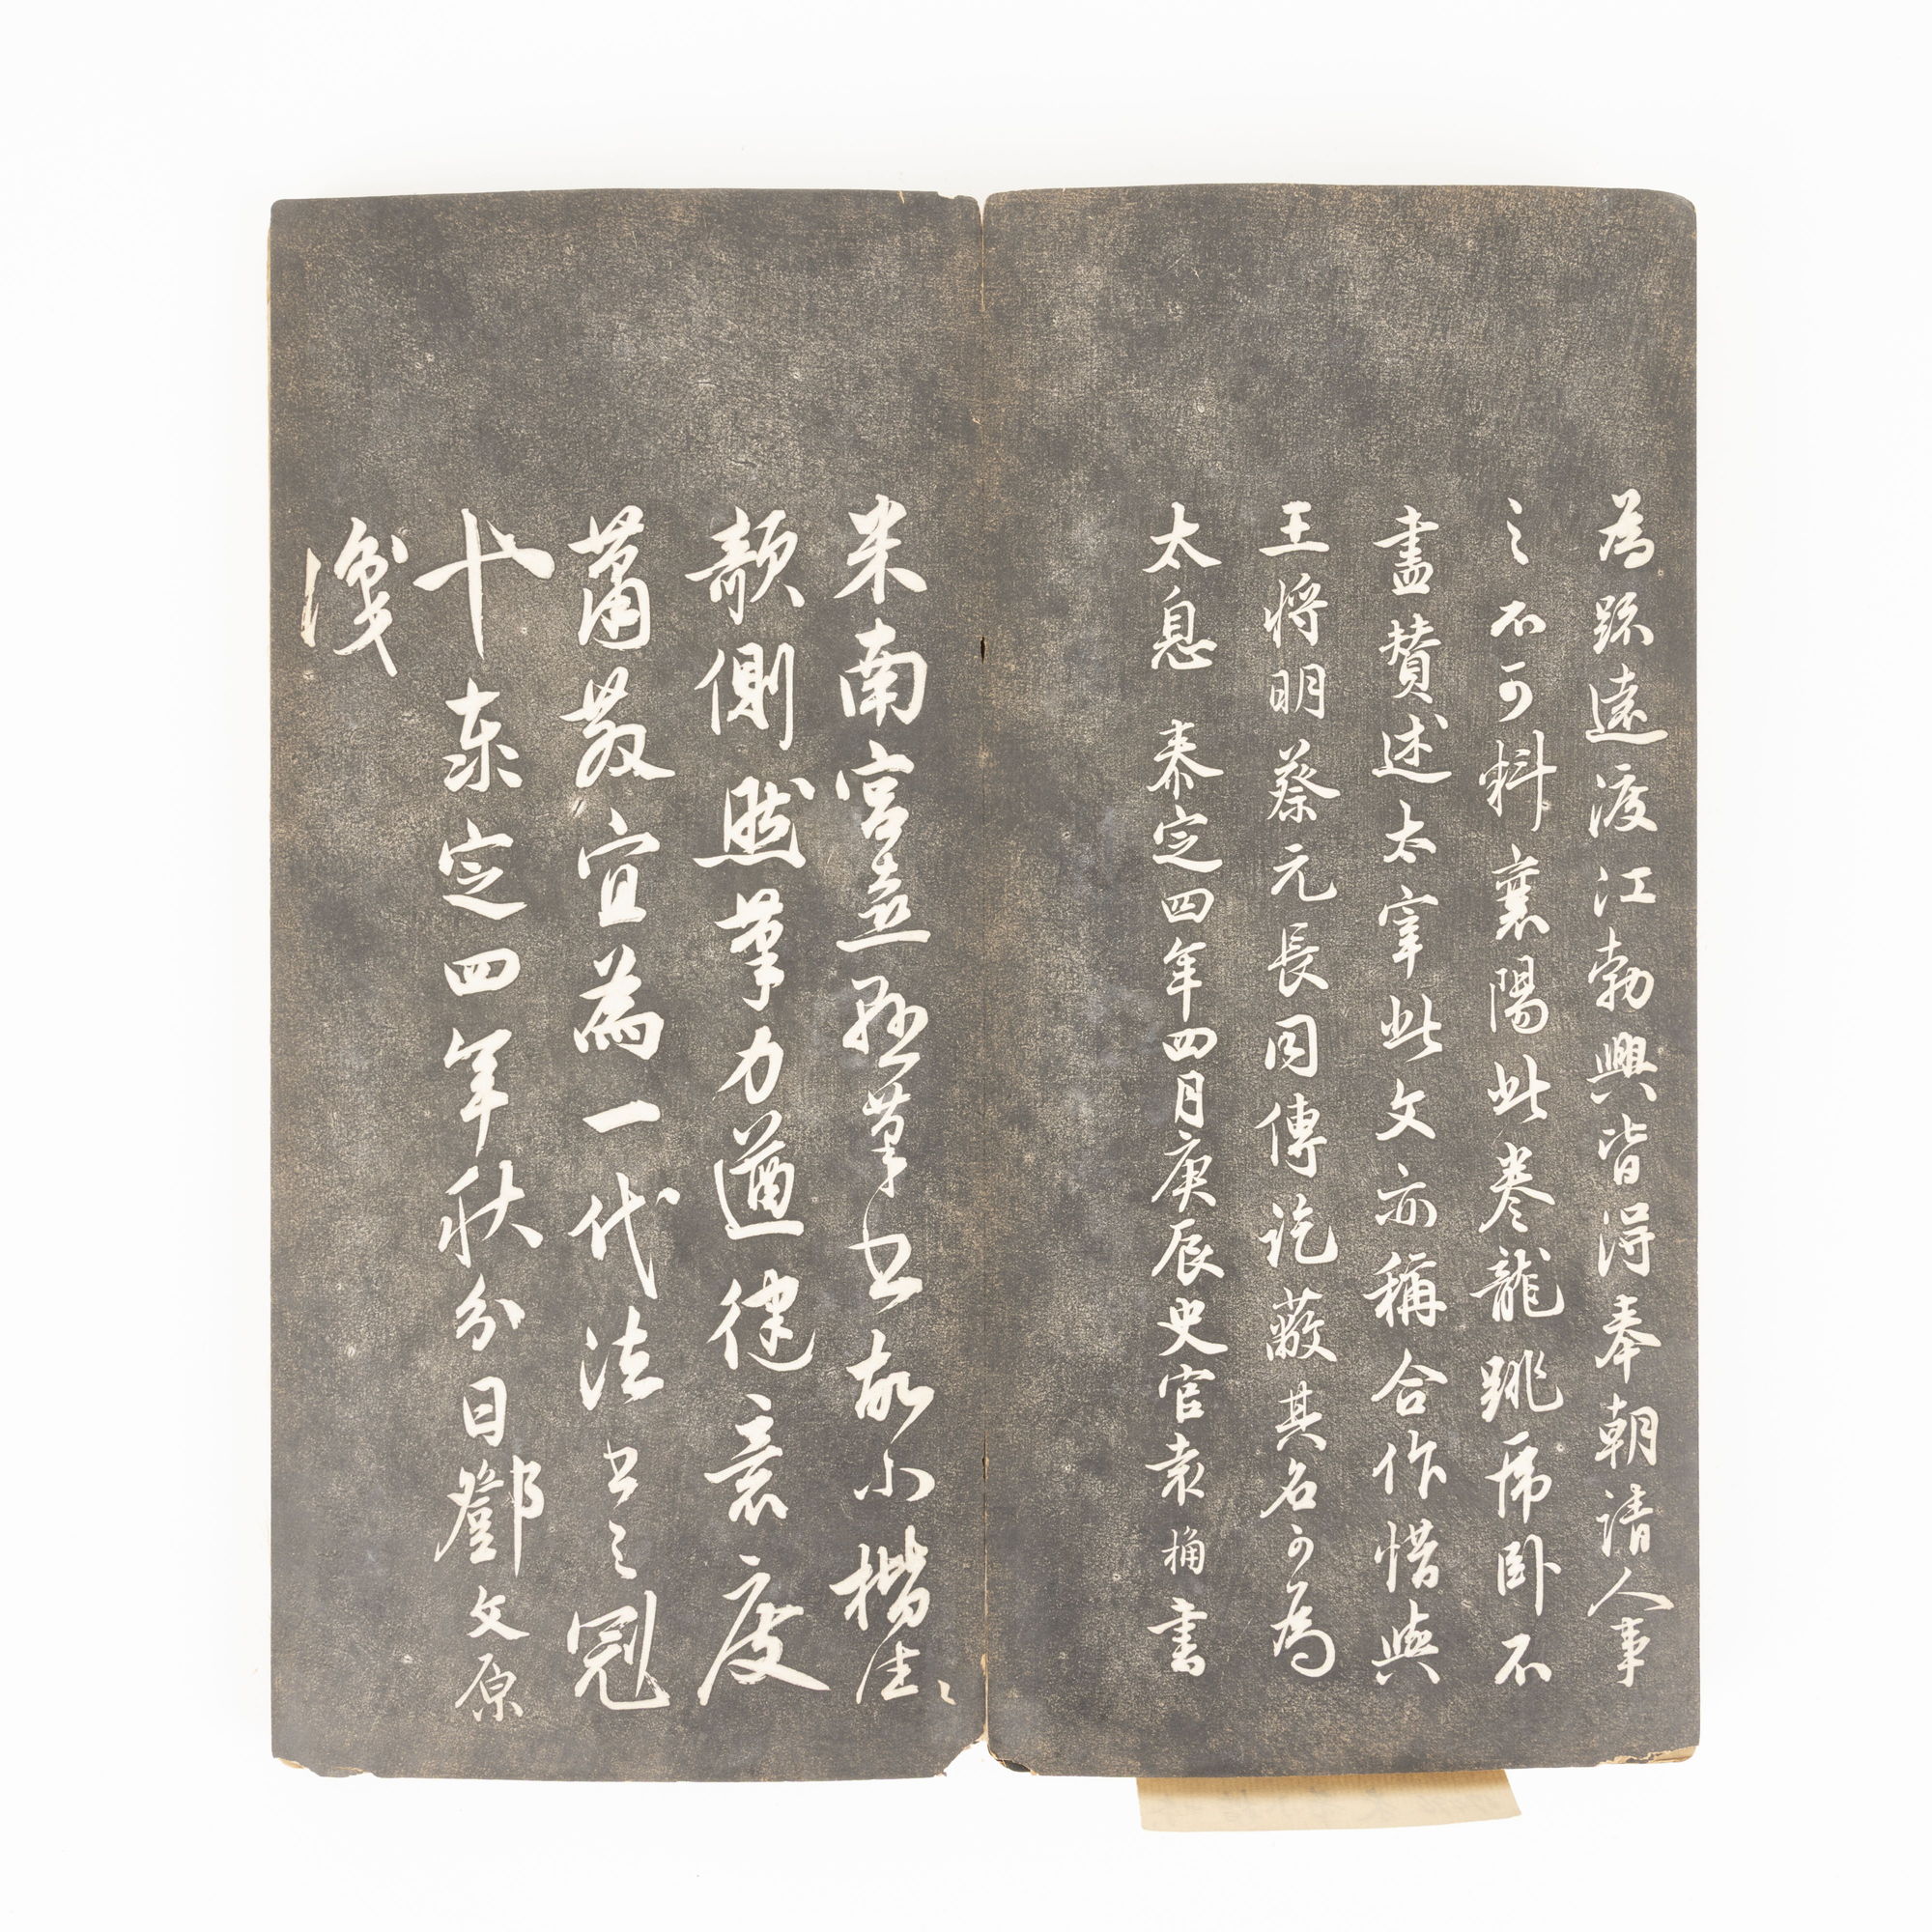 為疏遠渡江勃興皆得奉朝請人事
之不可料襄陽此卷龍跳虎臥不
盡贊述太宰此文亦稱合作惜與
王將明蔡元長同傳訖蔽其名可為
太息 泰定四年四月庚辰史官袁桷書
米南宮善懸筆書故小楷往〻
側然筆力遒律意度
蕭散宜為一代法書之冠
泰定四年秋分日鄧文原
識